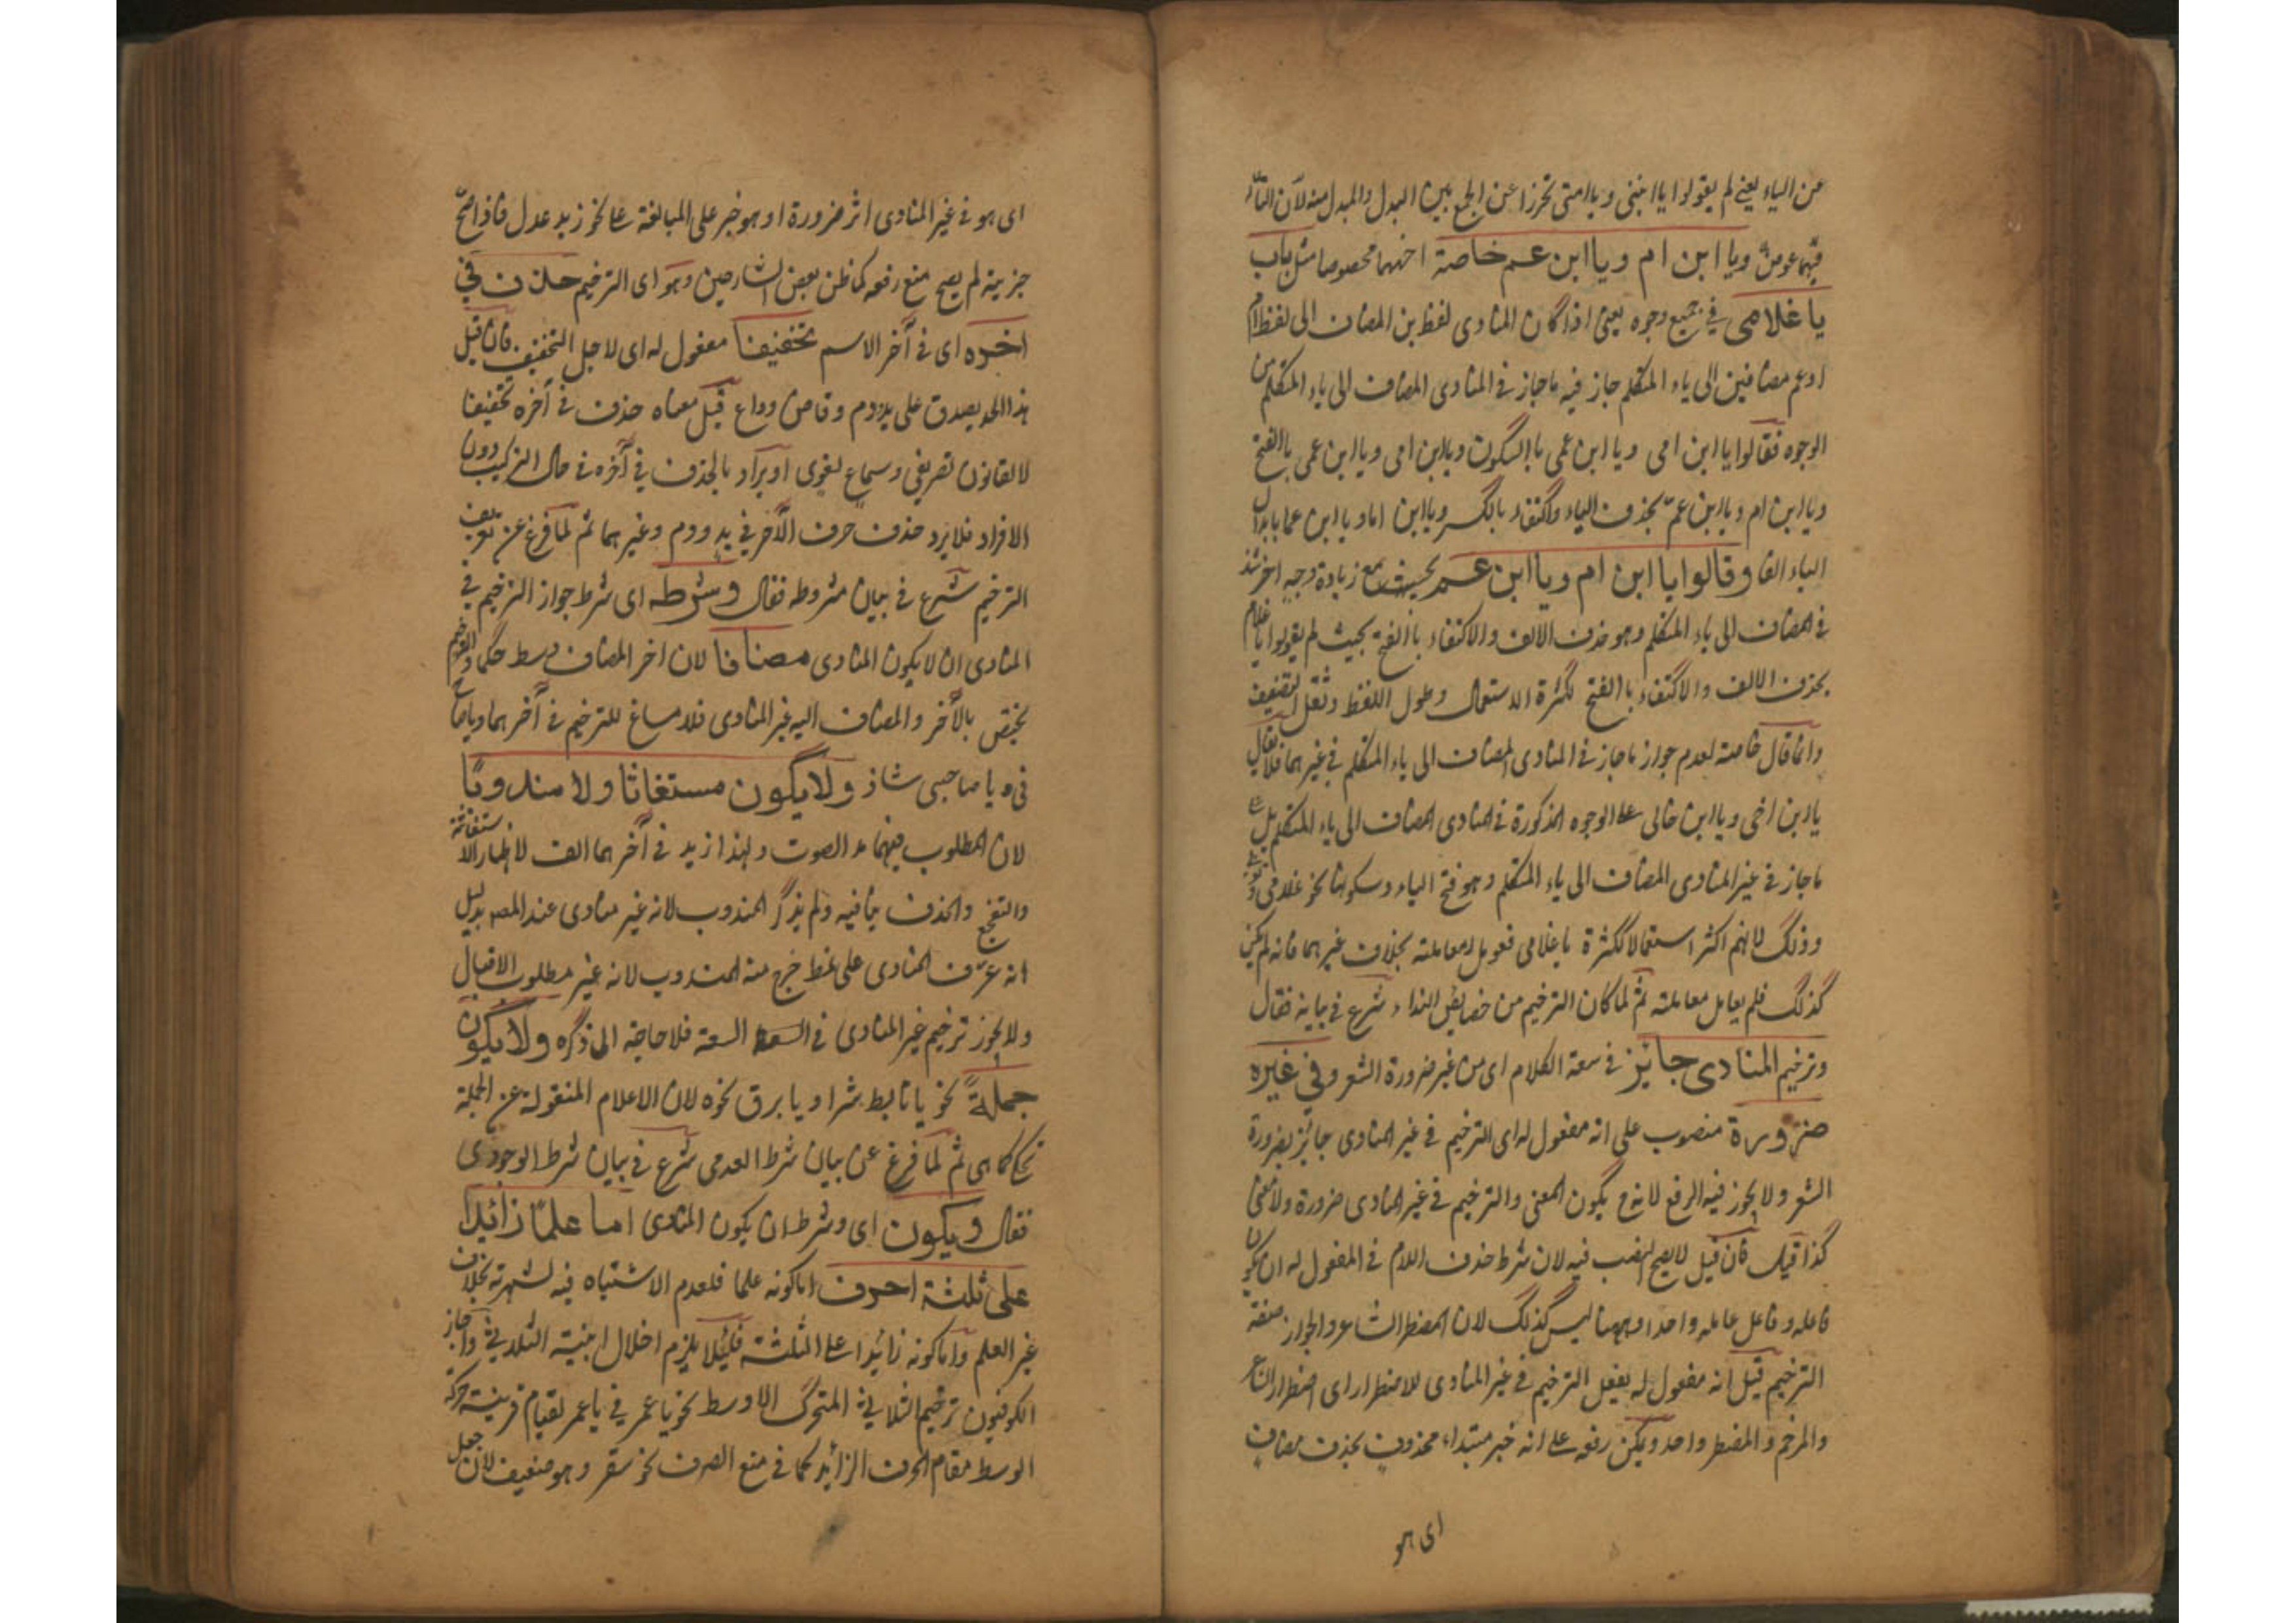 عن الياء يعني لم يقولوا يا ابتي ويا امتي تحرزا عن الجمع بين البدل والمبدل منه لان التاء
فيهما عوض ويا ابن ام ويا ابن عم خاصة اخهما مخصوصا مثل باب
يا غلامي في جميع وجوه يعني اذا كان المنادى لفظ بن المضاف الى لفظ ام
او عم مضافين الى ياء المتكلم جاز فيه ما جاز في المنادى المضاف الى ياء المتكلم من
الوجوه فقالوا يا ابن امي ويا ابن عمي بالسكون ويا ابن امي ويا ابن عمي باالفتح
ويا ابن ام ويا ابن عم بحذف الياء واكتفاء بالكسر ويا ابن اما ويا ابن عما بابدال
الياء الفا وقالوا يا ابن ام ويا ابن عم بحيث مع زيادة وجه اخر شذ
في المضاف الى ياء المتكلم وهو حذف الالف والاكتفاء باالفتح بحيث لم يقولوا يا غلام
بحذف الالف والاكتفاء باالفتح لكثرة الاستعمال وطول اللفظ وثقل التضعيف
وانما قال خاصة لعدم جواز ما جاز في المنادى المضاف الى ياء المتكلم في غيرهما فلا يقال
يا ابن اخي ويا ابن خالي على الوجوه المذكورة في المنادى المضاف الى ياء المتكلم بل على
ما جاز في غير المنادى المضاف الى ياء المتكلم وهو فتح الياء وسكونها نحو غلامي
وذلك لانهم اكثر استعمالا لكثرة يا غلامي فعومل معاملته بخلاف غيرهما فانه لم يكن
كذلك فلم يعامل معاملته ثم لما كان الترخيم من خصايص النداء شرع في بيانه فقال
وترخيم المنادى جايز في سعة الكلام اى من غير ضرورة الشعر وفي غيره
ضرورة منصوب على انه مفعول له اى الترخيم في غير المنادى جائز لضرورة
الشعر ولا يجوز فيه الرفع لانه ح يكون المعنى والترخيم في غير المنادى ضرورة ولا معنى
كذا قيل فان قيل لا يصح النصب فيه لان شرط حذف اللام في المفعول له ان يكون
فاعله وفاعل عامله واحدا وههنا ليس كذلك لان المضطر الشاعر والجواز صفة
الترخيم قيل انه مفعول له يفعل الترخيم في غير المنادى للاضطرار اى اضطرار الشاعر
والمرخم والمضطر واحد ويمكن رفعه على انه خبر مبتداء محذوف بحذف مضاف
اى هو
اى هو في غير المنادى اثر ضرورة او هو خبر على المبالغة على نحو زيد عدل فاذا صح
خبريته لم يصح منع رفعه كما ظن بعض الشارحين وهو اى الترخيم حذف في
اخره اى في آخر الاسم تخفيفا مفعول له اى لاجل التخفيف فان قيل
هذا الحد يصدق على يد ودم وقاض وداع قيل معناه حذف في آخره تخفيفا
لا لقانون تصريفي وسماع لغوي او يراد بالحذف في آخره في حال التركيب دون
الافراد فلا يرد حذف حرف الآخر في يد ودم وغيرهما ثم لما فرغ عن تعريف
الترخيم شرع في بيان شروطه فقال وشرطه اى شرط جواز الترخيم في
المنادى ان لا يكون المنادى مضافا لان اخر المضاف وسط حكما والترخيم
يختص بالآخر والمضاف اليه غير المنادى فلا مساغ للترخيم في آخرهما ويا صاح
في يا صاحبي شاذ ولا يكون مستغاثا ولا مندوبا
لان المطلوب فيهما مد الصوت ولهذا زيد في آخرهما الف لاظهار الاستغاثة
والتفجع والحذف ينافيه ولم يذكر المندوب لانه غير منادى عند المصنف بدليل
انه عرف المنادى على نمط خرج منه المندوب لانه غير مطلوب الاقبال
ولا يجوز ترخيم غير المنادى في السعة فلا حاجة الى ذكره ولا يكون
جملة نحو يا تابط شرا ويا برق نحره لان الاعلام المنقولة عن الجملة
تحكى كما هي ثم لما فرغ عن بيان شرط العدمي شرع في بيان شرط الوجودى
فقال ويكون اى وشرط ان يكون المنادى اما علما زائدا
على ثلثة احرف اما كونه علما فلعدم الاشتباه فيه لشهرته بخلاف
غير العلم واما كونه زائدا على الثلثة فليلا يلزم اخلال ابنية الثلاثي واجاز
الكوفيون ترخيم الثلاثي المتحرك الاوسط نحو يا عمر في يا عمر لقيام قرينة حركة
الوسط مقام الحرف الزائد كما في منع الصرف نحو سقر وهو ضعيف لان جعل